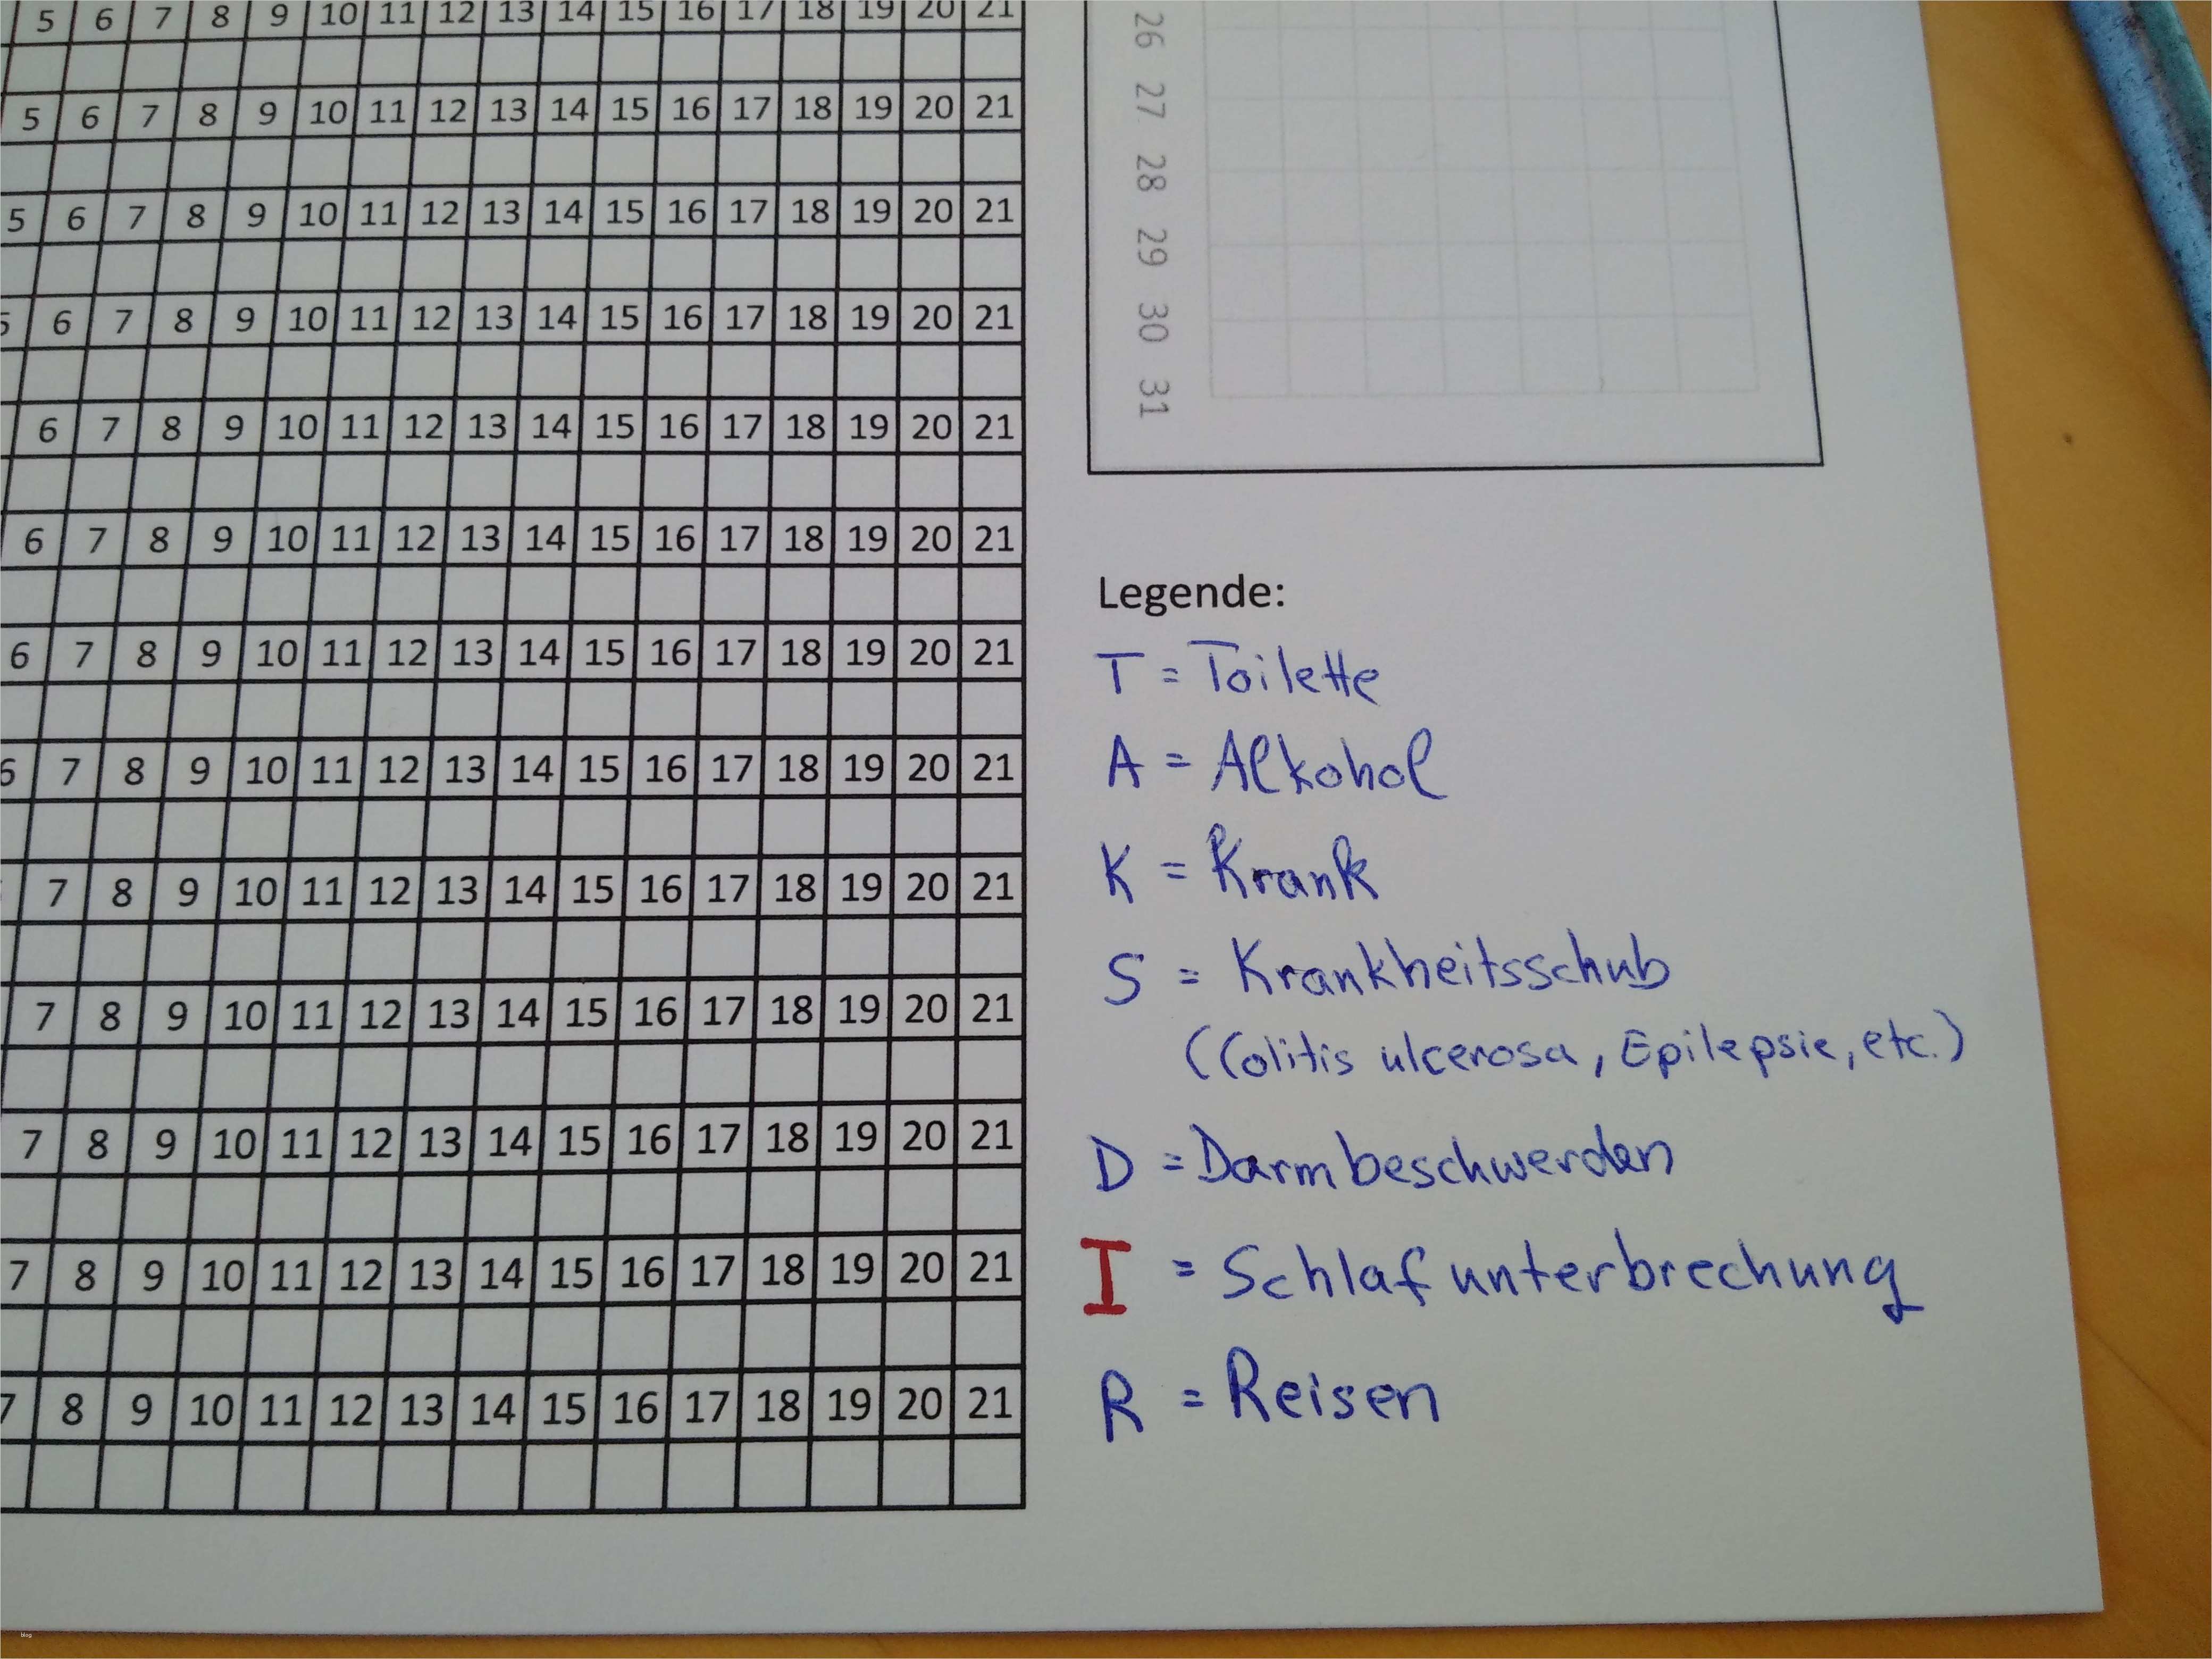 5 6 7 8 9 10 11 12 13 14 15 16 17 18 19 20 21
5 6 7 8 9 10 11 12 13 14 15 16 17 18 19 20 21
5 6 7 8 9 10 11 12 13 14 15 16 17 18 19 20 21
5 6 7 8 9 10 11 12 13 14 15 16 17 18 19 20 21
6 7 8 9 10 11 12 13 14 15 16 17 18 19 20 21
6 7 8 9 10 11 12 13 14 15 16 17 18 19 20 21
6 7 8 9 10 11 12 13 14 15 16 17 18 19 20 21
6 7 8 9 10 11 12 13 14 15 16 17 18 19 20 21
7 8 9 10 11 12 13 14 15 16 17 18 19 20 21
7 8 9 10 11 12 13 14 15 16 17 18 19 20 21
7 8 9 10 11 12 13 14 15 16 17 18 19 20 21
7 8 9 10 11 12 13 14 15 16 17 18 19 20 21
7 8 9 10 11 12 13 14 15 16 17 18 19 20 21
26 27 28 29 30 31
Legende:
T = Toilette
A = Alkohol
K = Krank
S = Krankheitsschub
(Colitis ulcerosa, Epilepsie, etc.)
D = Darmbeschwerden
I = Schlafunterbrechung
R = Reisen
blog